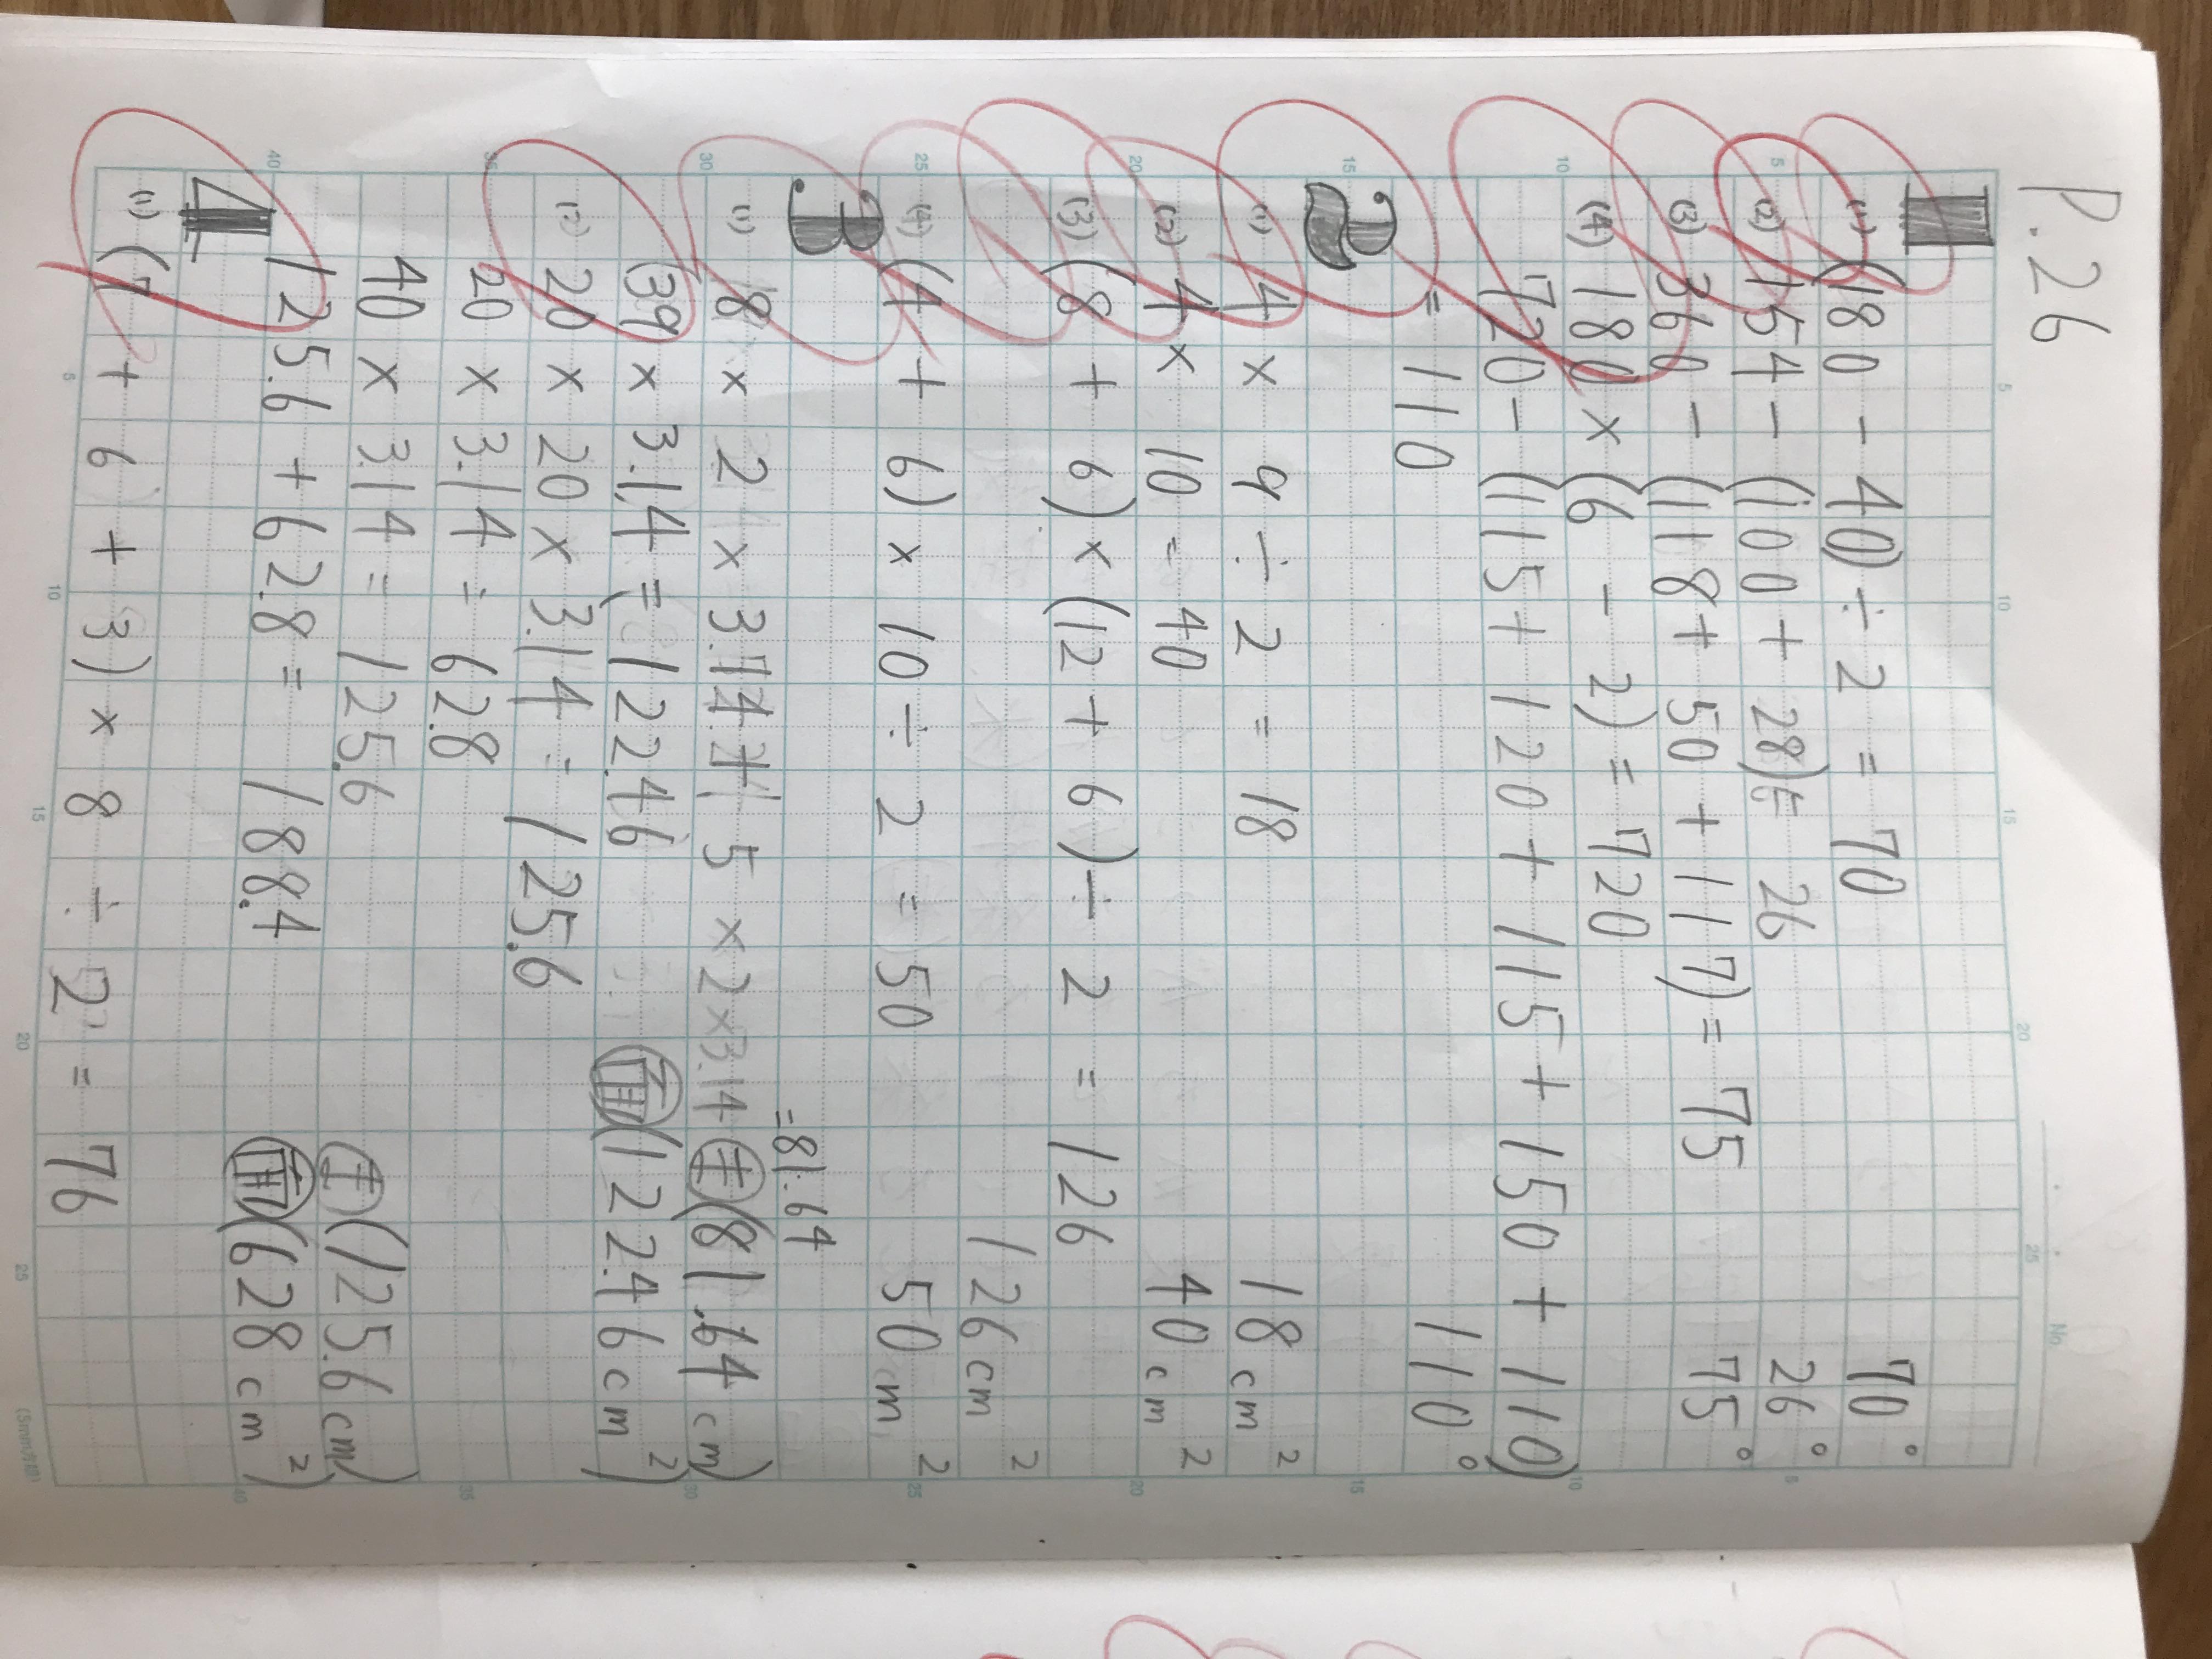 P.26
1
(1) (180 - 40) ÷ 2 = 70 70°
(2) 154 - (100 + 28) = 26 26°
(3) 360 - (118 + 50 + 117) = 75 75°
(4) 180 × (6 - 2) = 720
720 - (115 + 120 + 115 + 150 + 110)
= 110 110°
2
(1) 4 × 9 ÷ 2 = 18 18cm²
(2) 4 × 10 = 40 40cm²
(3) (8 + 6) × (12 + 6) ÷ 2 = 126
126cm²
(4) (4 + 6) × 10 ÷ 2 = 50 50cm²
3
= 81.64
(1) 8 × 2 × 3.14 + 5 × 2 × 3.14 (81.64cm)
39 × 3.14 = 122.46 面(122.46cm²)
(2) 20 × 20 × 3.14 = 125.6
20 × 3.14 = 62.8
40 × 3.14 = 125.6 (125.6cm)
125.6 + 62.8 = 188.4 面(628cm²)
4
(1) (7 + 6 + 3) × 8 ÷ 2 = 76